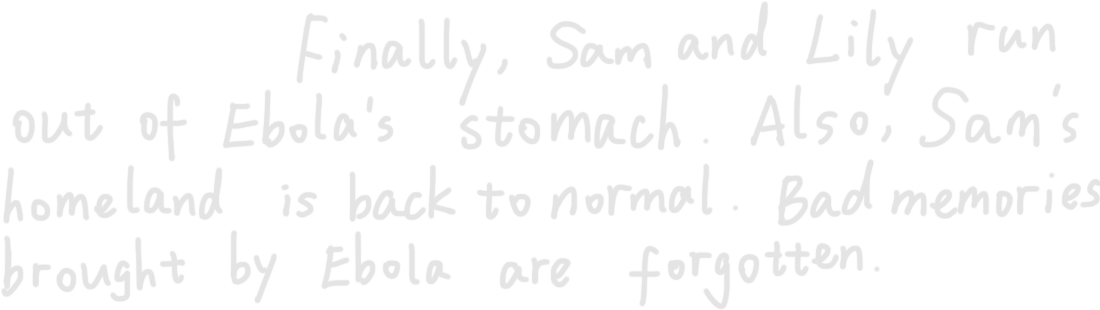 Finally, Sam and Lily run
out of Ebola's stomach. Also, Sam's
homeland is back to normal. Bad memories
brought by Ebola are forgotten.